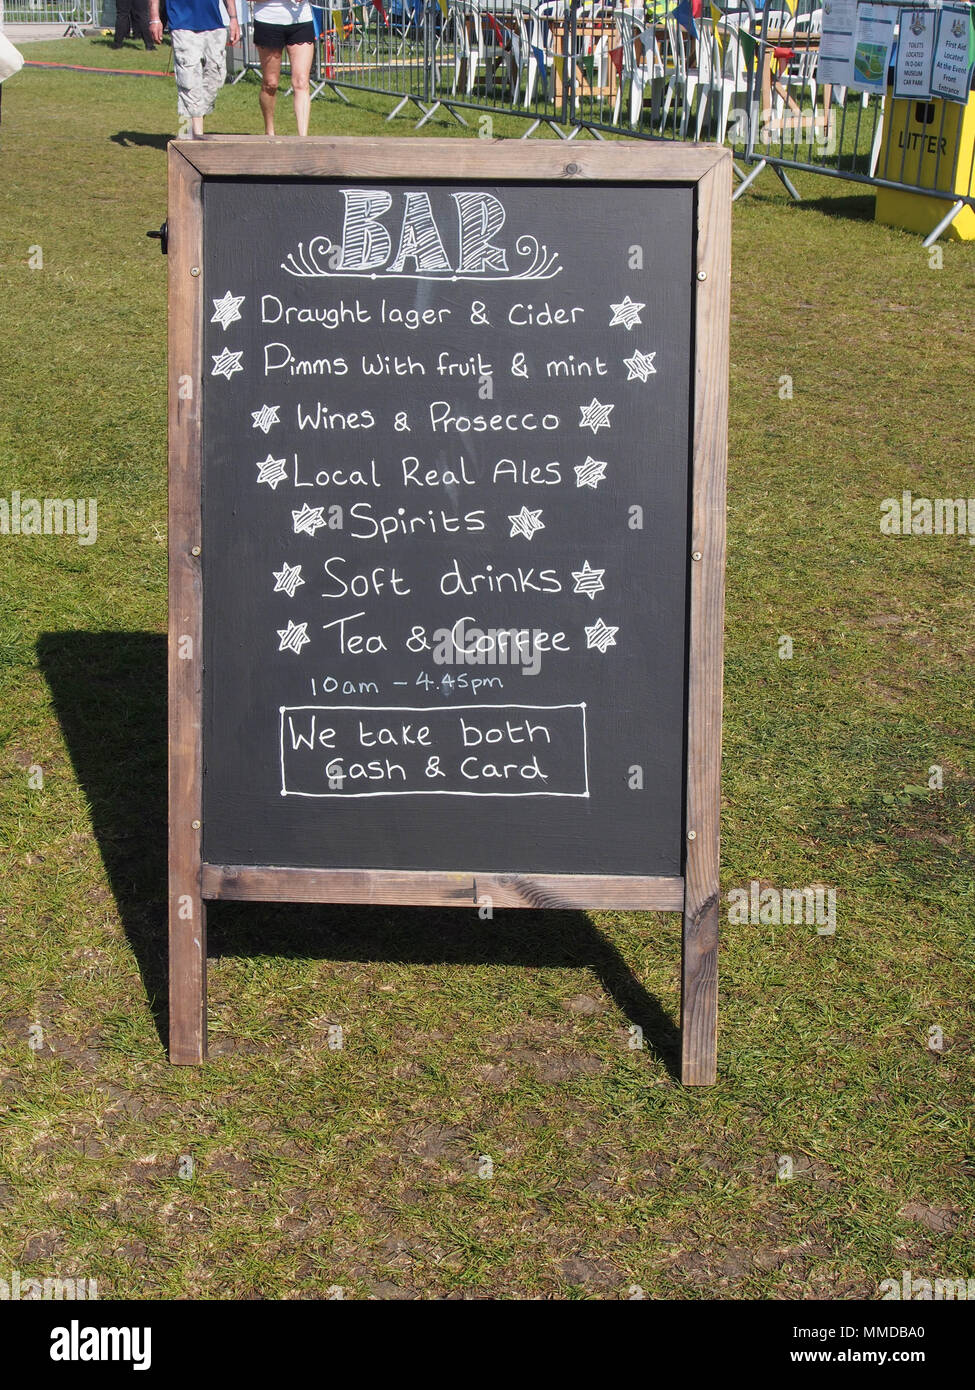 TOILETS
LOCATED
IN D-DAY
MUSEUM
CAR PARK
First Aid
Located
At the Event
Front
Entrance
LITTER
BAR
Draught lager & cider
Pimms with fruit & mint
Wines & Prosecco
Local Real Ales
Spirits
Soft drinks
Tea & Coffee
10am - 4.45pm
We take both
Cash & Card
alamy stock photo
MMDBA0
www.alamy.com